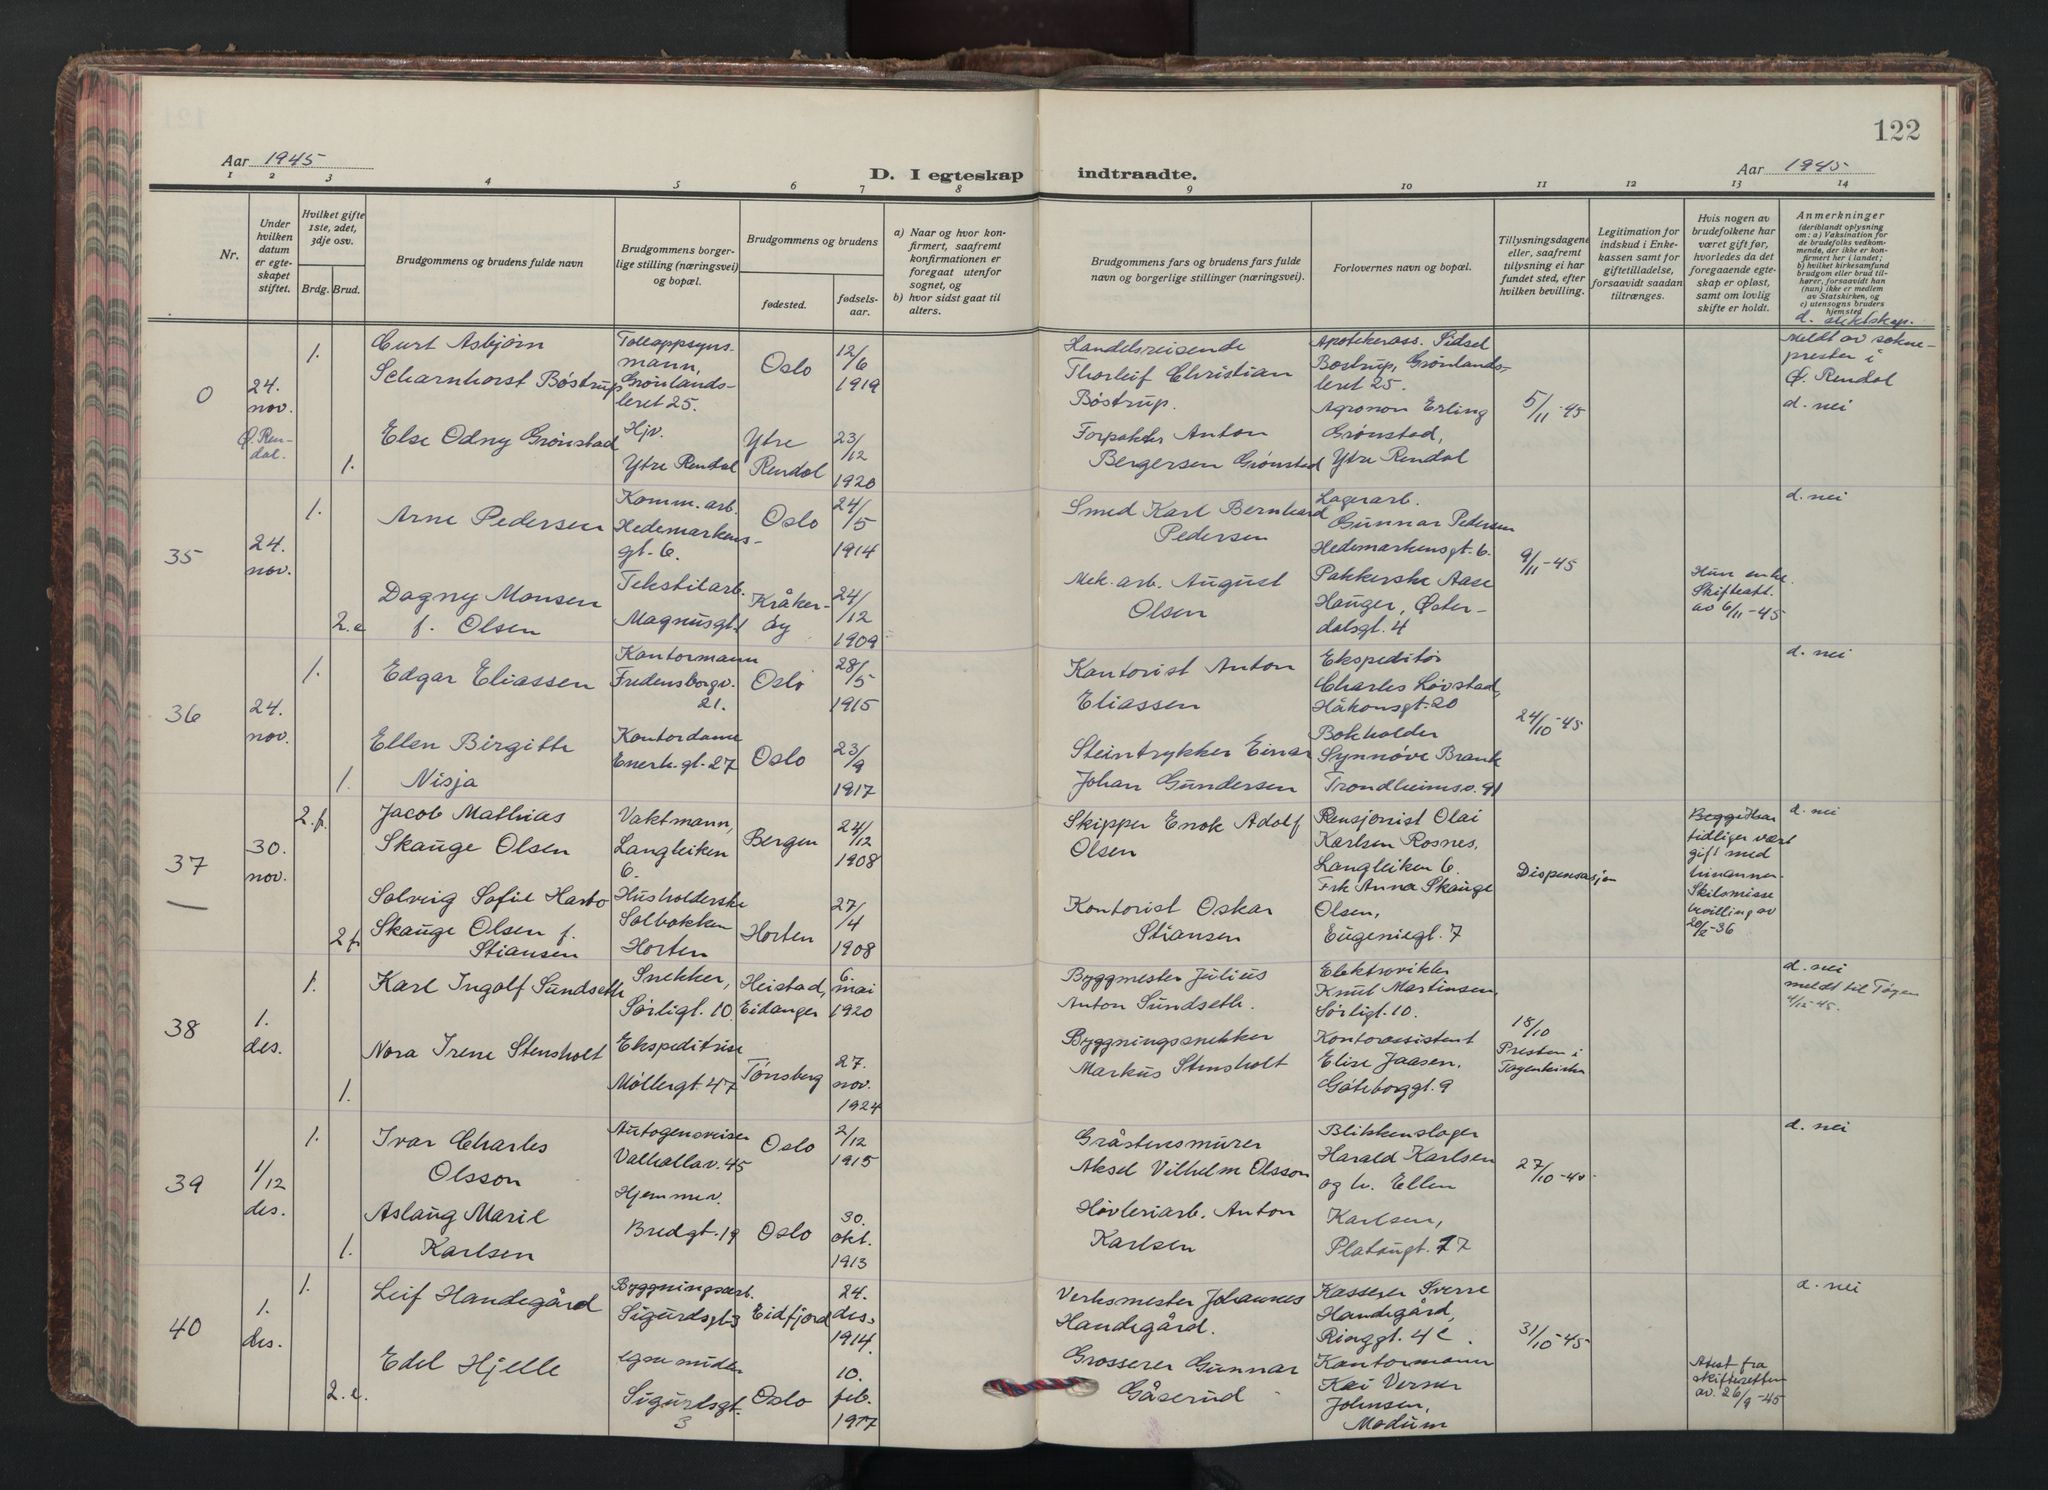 122
Aar 1945
D. I egteskap indtraadte.
Aar 1945
1 2 3 4 5 6 7 8 9 10 11 12 13 14
Nr.
Under hvilken datum er egteskapet stiftet.
Hvilket gifte 1ste, 2det, 3dje osv.
Brdg. Brud.
Brudgommens og brudens fulde navn
Brudgommens borgerlige stilling (næringsvei) og bopæl.
Brudgommens og brudens
fødested.
fødselsaar.
a) Naar og hvor konfirmert, saafremt konfirmationen er foregaat utenfor sognet, og
b) hvor sidst gaat til alters.
Brudgommens fars og brudens fars fulde navn og borgerlige stillinger (næringsvei).
Forlovernes navn og bopæl.
Tillysningsdagene eller, saafremt tillysning ei har fundet sted, efter hvilken bevilling.
Legitimation for indskud i Enkekassen samt for giftetilladelse, forsaavidt saadan tiltrænges.
Hvis nogen av brudefolkene har været gift før, hvorledes da det foregaaende egteskap er opløst, samt om lovlig skifte er holdt.
Anmerkninger
(deriblandt oplysning om: a) Vaksination for de brudefolks vedkommende, der ikke er konfirmert her i landet; b) hvilket kirkesamfund brudgom eller brud tilhører, forsaavidt han (hun) ikke er medlem av Statskirken, og c) utensogns bruders hjemsted
d. slektskap.
0
24. nov.
Ø. Rendal.
1.
Curt Asbjørn
Scharnhorst Bøstrup
Tolloppsynsmann,
Grønlandsleret 25.
Oslo
12/6 1919
Handelsreisende
Thorleif Christian
Bøstrup.
Apotekerass. Sidsel
Bøstrup, Grønlandsleret 25.
5/11-45
Meldt av sokneprester i
Ø. Rendal
d. nei
1.
Else Odny Grønstad
Hjv.
Ytre Rendal
Ytre Rendal
23/12 1920
Forpakter Anton
Bergersen Grønstad
Agronom Erling
Grønstad,
Ytre Rendal
35
24. nov.
1.
Arne Pedersen
Komm. arb.
Hedemarkensgt. 6.
Oslo
24/5 1914
Smed Karl Bernhard
Pedersen
Lagerarb.
Gunnar Pedersen
Hedemarkensgt. 6.
9/11-45
d. nei
2.e
Dagny Monsen
f. Olsen
Tekstilarb.
Magnusgt. 1
Kråkerøy
24/12 1909
Mek. arb. August
Olsen
Pakkerske Aase
Hauger, Østerdalsgt. 4
Hun enke.
Skifteatt.
av 6/11-45
36
24. nov.
1.
Edgar Eliassen
Kontormann
Fredensborgv.
21.
Oslo
28/5 1915
Kontorist Anton
Eliassen
Ekspeditør
Charles Løvstad,
Håkonsgt. 20
24/10-45
d. nei
1.
Ellen Birgitte
Nisja
Kontordame
Enerh.gt. 27
Oslo
23/9 1917
Steintrykker Einar
Johan Gundersen
Bokholder
Synnøve Brank
Trondheimsv. 91
37
30. nov.
2.f.
Jacob Mathias
Skauge Olsen
Vaktmann,
Langleiken
6.
Bergen
24/12 1908
Skipper Enok Adolf
Olsen
Pensjonist Olai
Karlsen Rosnes,
Langleiken 6.
Dispensasjon
Begge har
tidliger vært
gift med
hinannen.
Skilsmisse
bevilling av
20/2-36
d. nei
2.f
Solveig Sofie Harbo
Skauge Olsen f.
Stiansen
Husholderske
Solbakken
Horten
Horten
27/4 1908
Kontorist Oskar
Stiansen
Frk Anna Skauge
Olsen,
Eugeniegt. 7
38
1. des.
1.
Karl Ingolf Sundseth
Snekker,
Sørligt. 10
Heistad, Eidanger
6. mai 1920
Byggmester Julius
Anton Sundseth.
Elektrovikler
Knut Martinsen,
Sørligt. 10.
18/10
Presten i
Tøyenkirken
d. nei
meldt til Tøyen
4/12-45.
1.
Nora Irene Stensholt
Ekspeditrise
Møllergt. 47
Tønsberg
27. nov. 1924
Bygningssnekker
Markus Stensholt
Kontorassistent
Elise Jaasen,
Gøteborggt. 9
39
1/12 des.
1.
Ivar Charles
Olsson
Autogensveiser
Valhallav. 45
Oslo
2/12 1915
Gråstensmurer
Aksel Vilhelm Olsson
Blikkenslager
Harald Karlsen
og h. Ellen
Karlsen,
Platougt. 27
27/10-45
d. nei
1.
Aslaug Marie
Karlsen
Hjemmev.
Bredgt. 19
Oslo
30. okt. 1913
Høvleriarb. Anton
Karlsen
40
1. des.
1.
Leif Handegård
Bygningsarb.
Sigurdsgt. 3
Eidfjord
24. des. 1914.
Verksmester Johannes
Handegård.
Kasserer Sverre
Handegård,
Ringgt. 4 C.
31/10-45
d. nei
2.e.
Edel Hjelle
egne midler
Sigurdsgt.
3
Oslo
10. feb. 1917
Grosserer Gunnar
Gåserud
Kontormann
Kai Verner
Johnsen,
Modum
Atest fra
skifteretten
av. 26/9-45